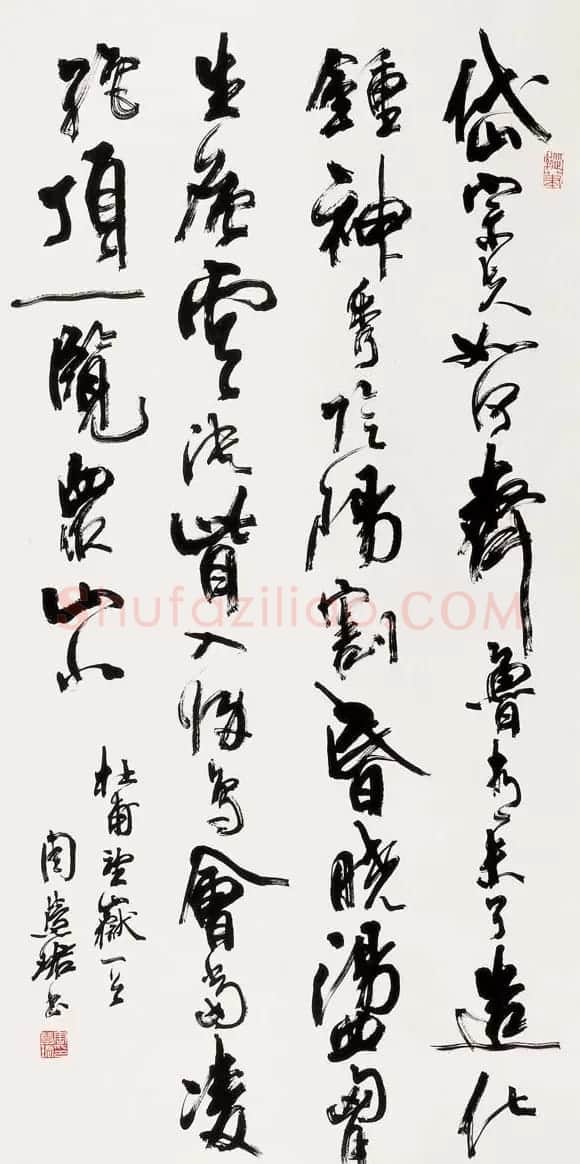 岱宗夫如何齊魯青未了造化
鍾神秀陰陽割昏曉盪胷
生層雲決眥入歸鳥會當凌
絕頂一覽衆山小
杜甫望嶽一首
周慧珺書
Shufaziliao.COM